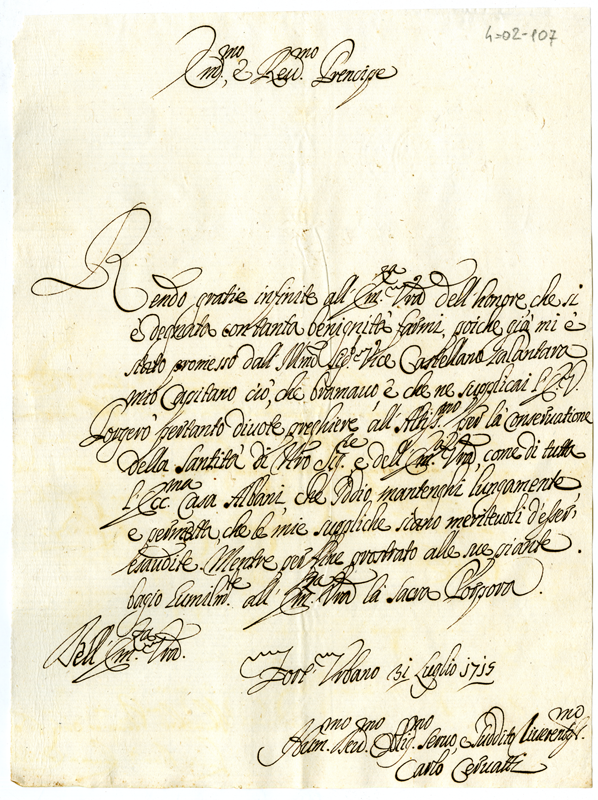 4=02-107
Em.mo, e Reu.mo Prencipe
Rendo gratie infinite all'Em.za Vrã dell'honore, che si
è degnata con tanta benignità farmi, poiche già mi è
stato promesso dall' Sig.r Vice Castellano
mio Capitano ciò, che bramauo, e che ne supplicai
Porgerò pertanto diuote preghiere all'Altis.mo per la conseruatione
della Santità di Nro Sig.re e dell'Em.za Vrã, come di tutta
l'Ecc.ma Casa Albani, che Iddio mantenghi lungamente
e permetta, che le mie suppliche siano meriteuoli d'esser'
esaudite. Mentre per fine prostrato alle sue piante
bagio humilm.te all'Em.za Vrã la Sacra Porpora.
Dell'Em.za Vrã.
Forte Urbano 31 Luglio 1715
Hum.mo Deu.mo Oblig.mo Seruo, e Suddito Riuerentis.mo
Carlo Ceruatti